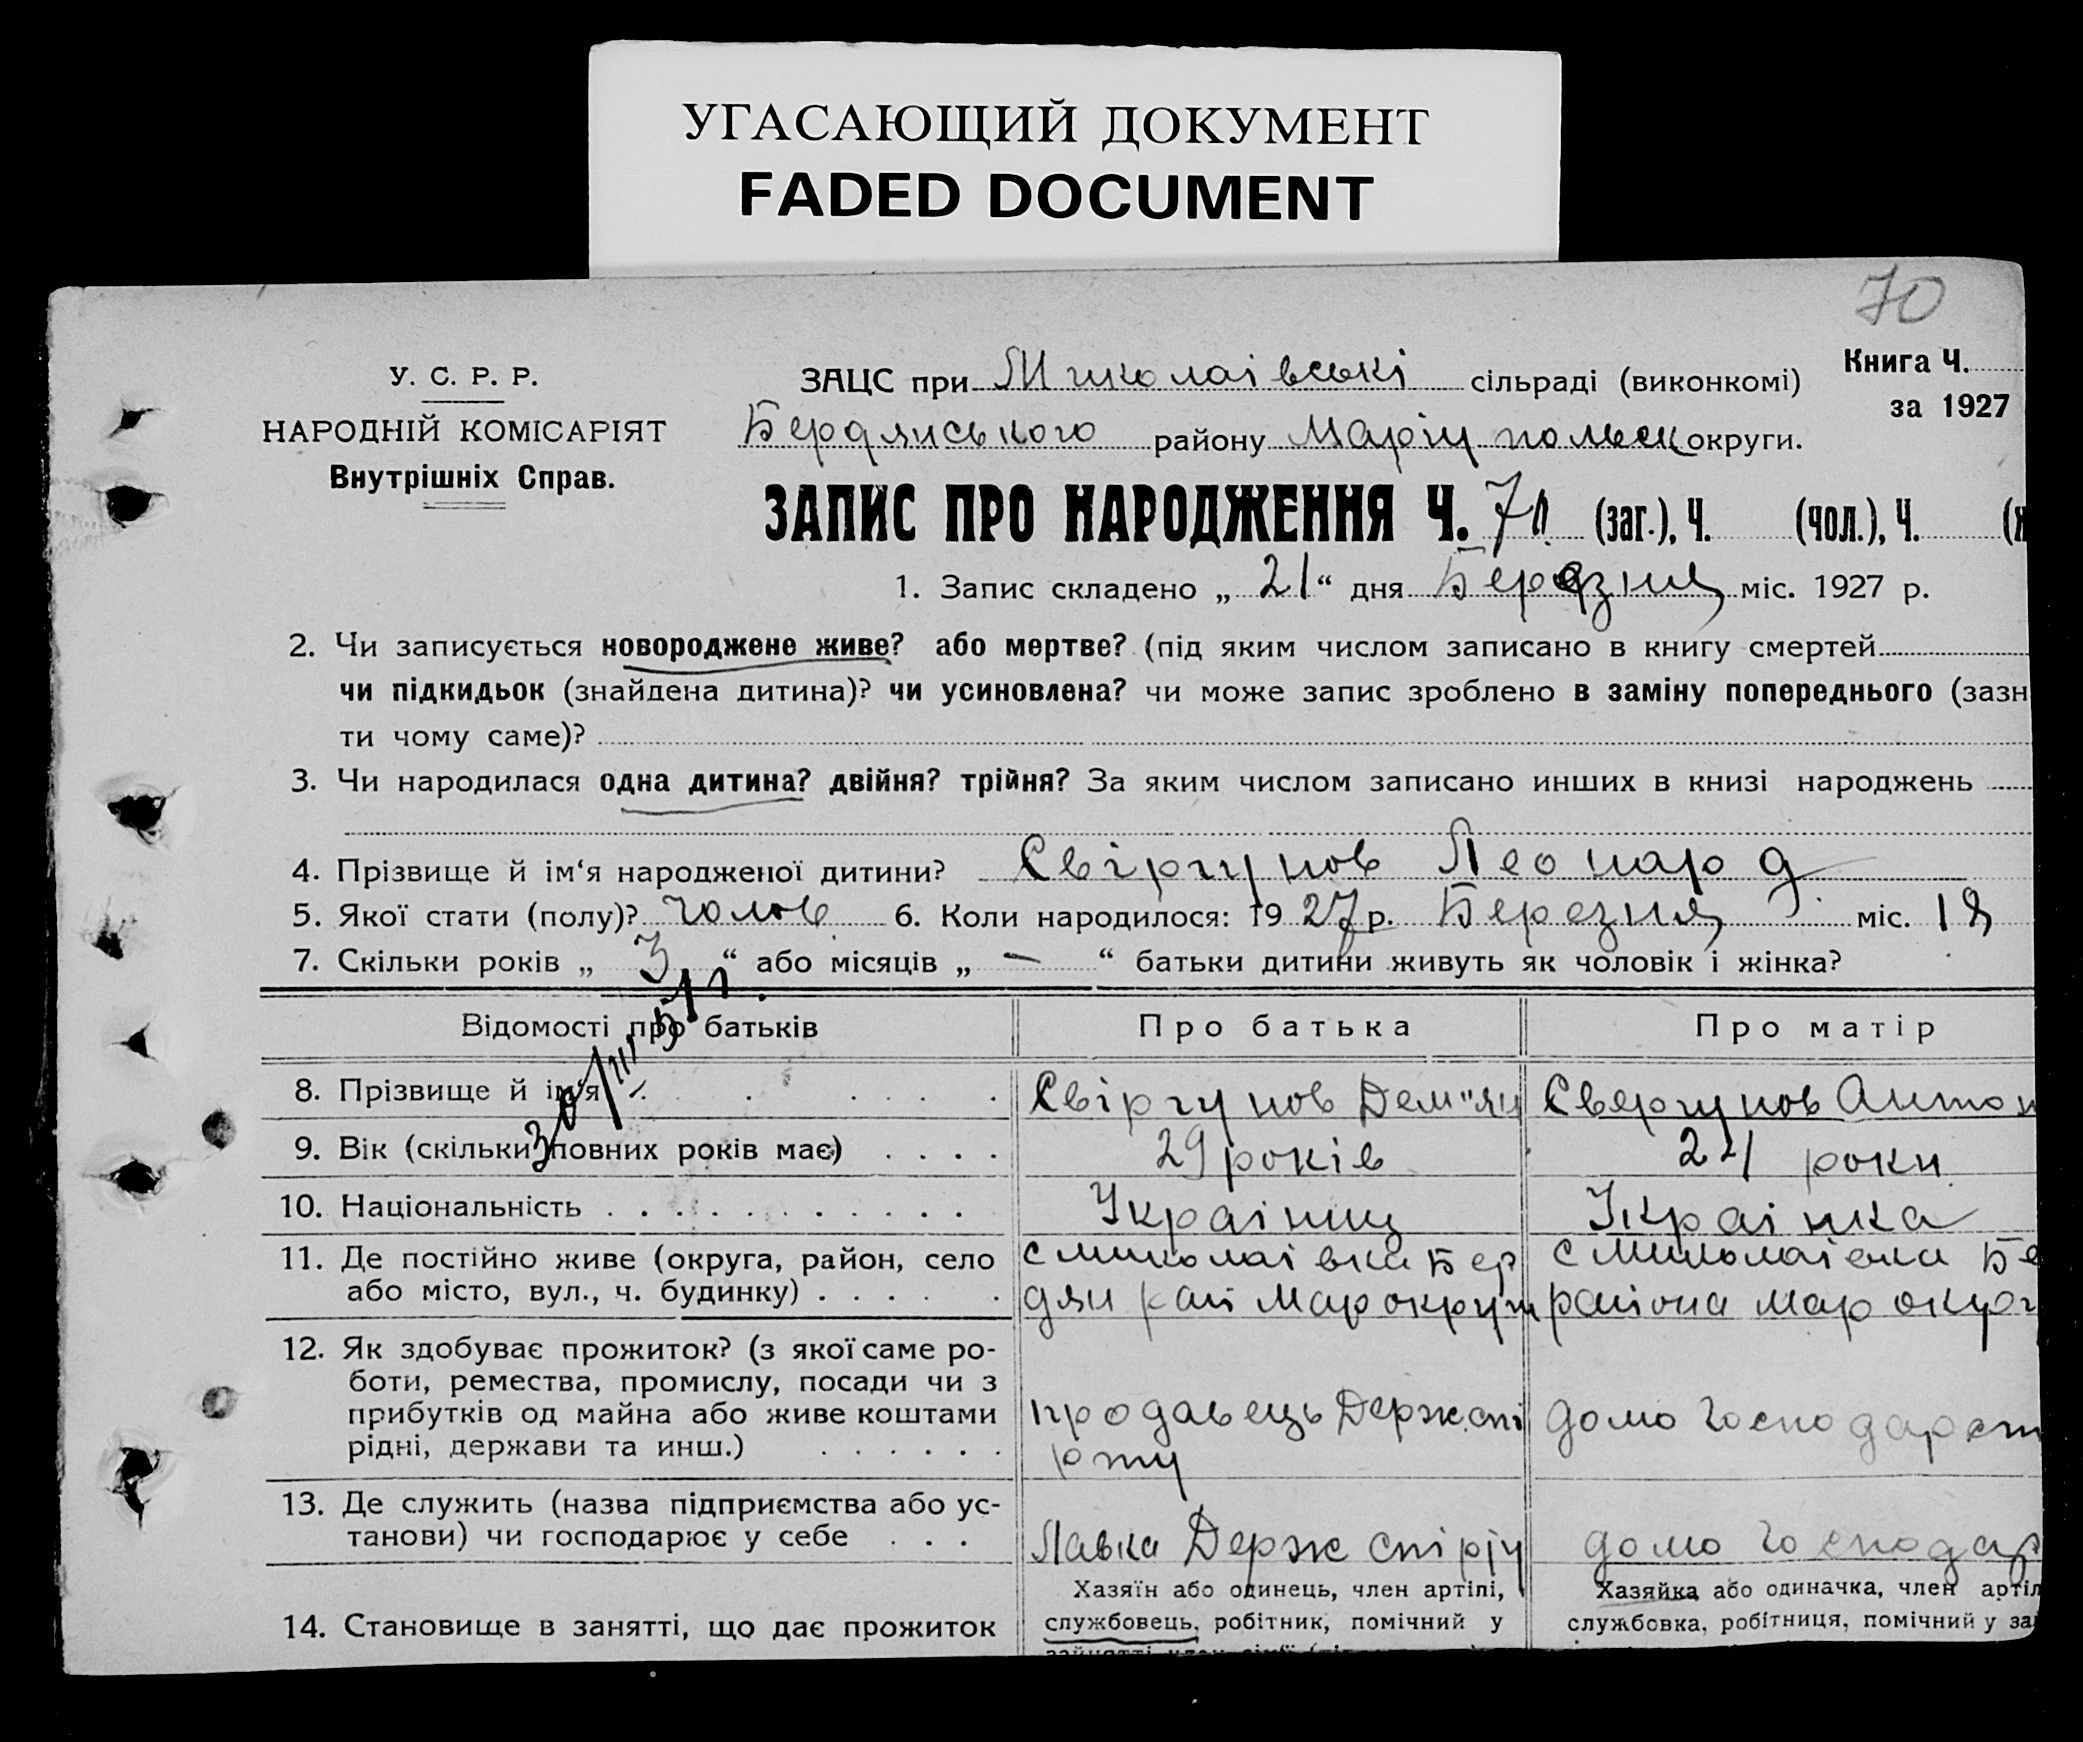 УГАСАЮЩИЙ ДОКУМЕНТ
FADED DOCUMENT
70
У. С. Р. Р.
НАРОДНІЙ КОМІСАРІЯТ
Внутрішніх Справ.
ЗАЦС при Миколаівські сільраді (виконкомі)
Книга Ч.
за 1927
Бердянського району Маріупольськ округи.
ЗАПИС ПРО НАРОДЖЕННЯ Ч. 70 (заг.), Ч. (чол.), Ч. (ж
1. Запис складено „ 21 “ дня Березня міс. 1927 р.
2. Чи записується новороджене живе? або мертве? (під яким числом записано в книгу смертей
чи підкидьок (знайдена дитина)? чи усиновлена? чи може запис зроблено в заміну попереднього (зазн
ти чому саме)?
3. Чи народилася одна дитина? двійня? трійня? За яким числом записано инших в книзі народжень
4. Прізвище й ім‘я народженої дитини? Свіргунов Леонард
5. Якої стати (полу)? чолов 6. Коли народилося: 1927 р. Березня міс. 18
7. Скільки років „ 3 “ або місяців „ — “ батьки дитини живуть як чоловік і жінка?
Відомості про батьків Про батька Про матір
8. Прізвище й ім‘я Свіргунов Дем"ян Свергунов Антон
9. Вік (скільки повних років має) 29 років 24 роки
10. Національність Украінец Украінка
11. Де постійно живе (округа, район, село с Миколаівка Бер с Миколаівки Бе
або місто, вул., ч. будинку) дян рай Мар округи района Мар округ
12. Як здобуває прожиток? (з якої саме ро-
боти, ремества, промислу, посади чи з
прибутків од майна або живе коштами продавець Держспі домо Господарст
рідні, держави та инш.) рту
13. Де служить (назва підприємства або ус-
танови) чи господарює у себе Лавка Держ спірту домо Господар
Хазяїн або одинець, член артілі, Хазяйка або одиначка, член артіл
14. Становище в занятті, що дає прожиток службовець, робітник, помічний у службовка, робітниця, помічний у за